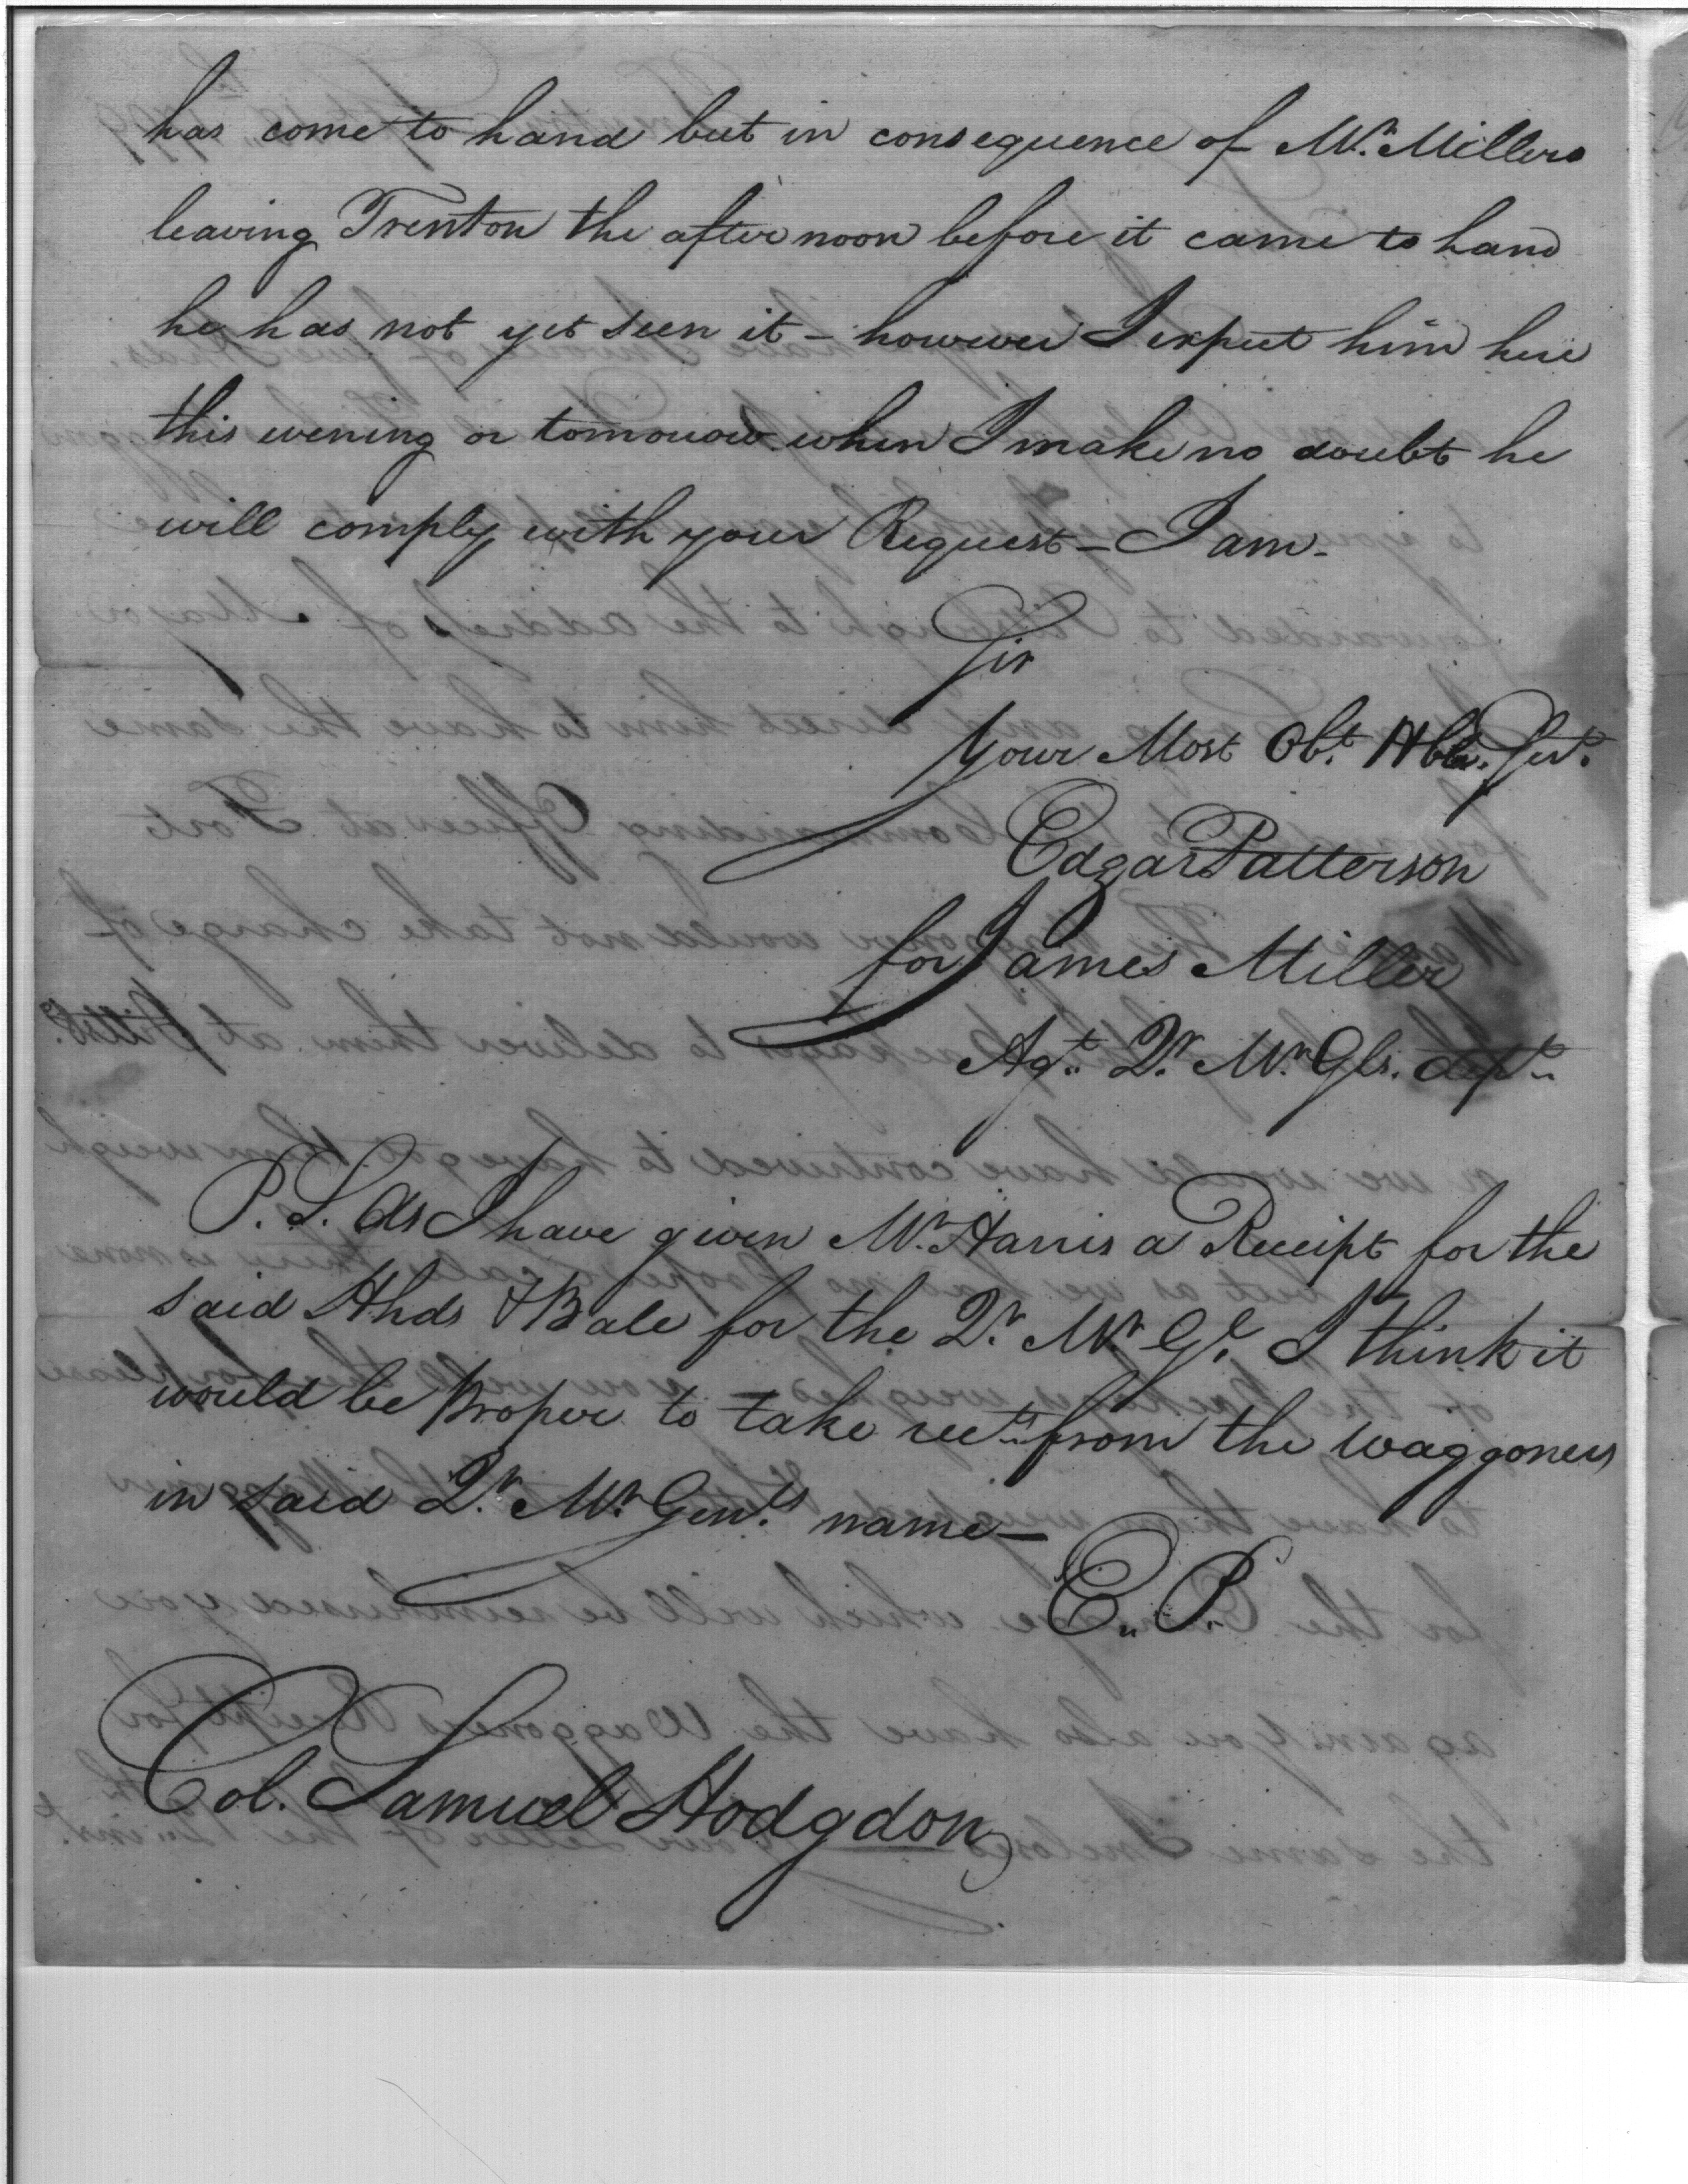 has come to hand but in consequence of Mr. Millers
leaving Trenton the afternoon before it came to hand
he has not yet seen it – however I expect him here
this evening or tomorrow when I make no doubt he
will comply with your Request – I am –
Sir
Your Most Obt. Hble. Sert.
Edgar Patterson
for James Miller
Agt. Qr. Mr. Gls. dept.
P.S. As I have given Mr. Harris a Receipt for the
said Hhds & Bale for the Qr. Mr. Gl. I think it
would be Proper to take rects. from the Waggoners
in said Qr. Mr. Genls. name —
E. P.
Col. Samuel Hodgdon